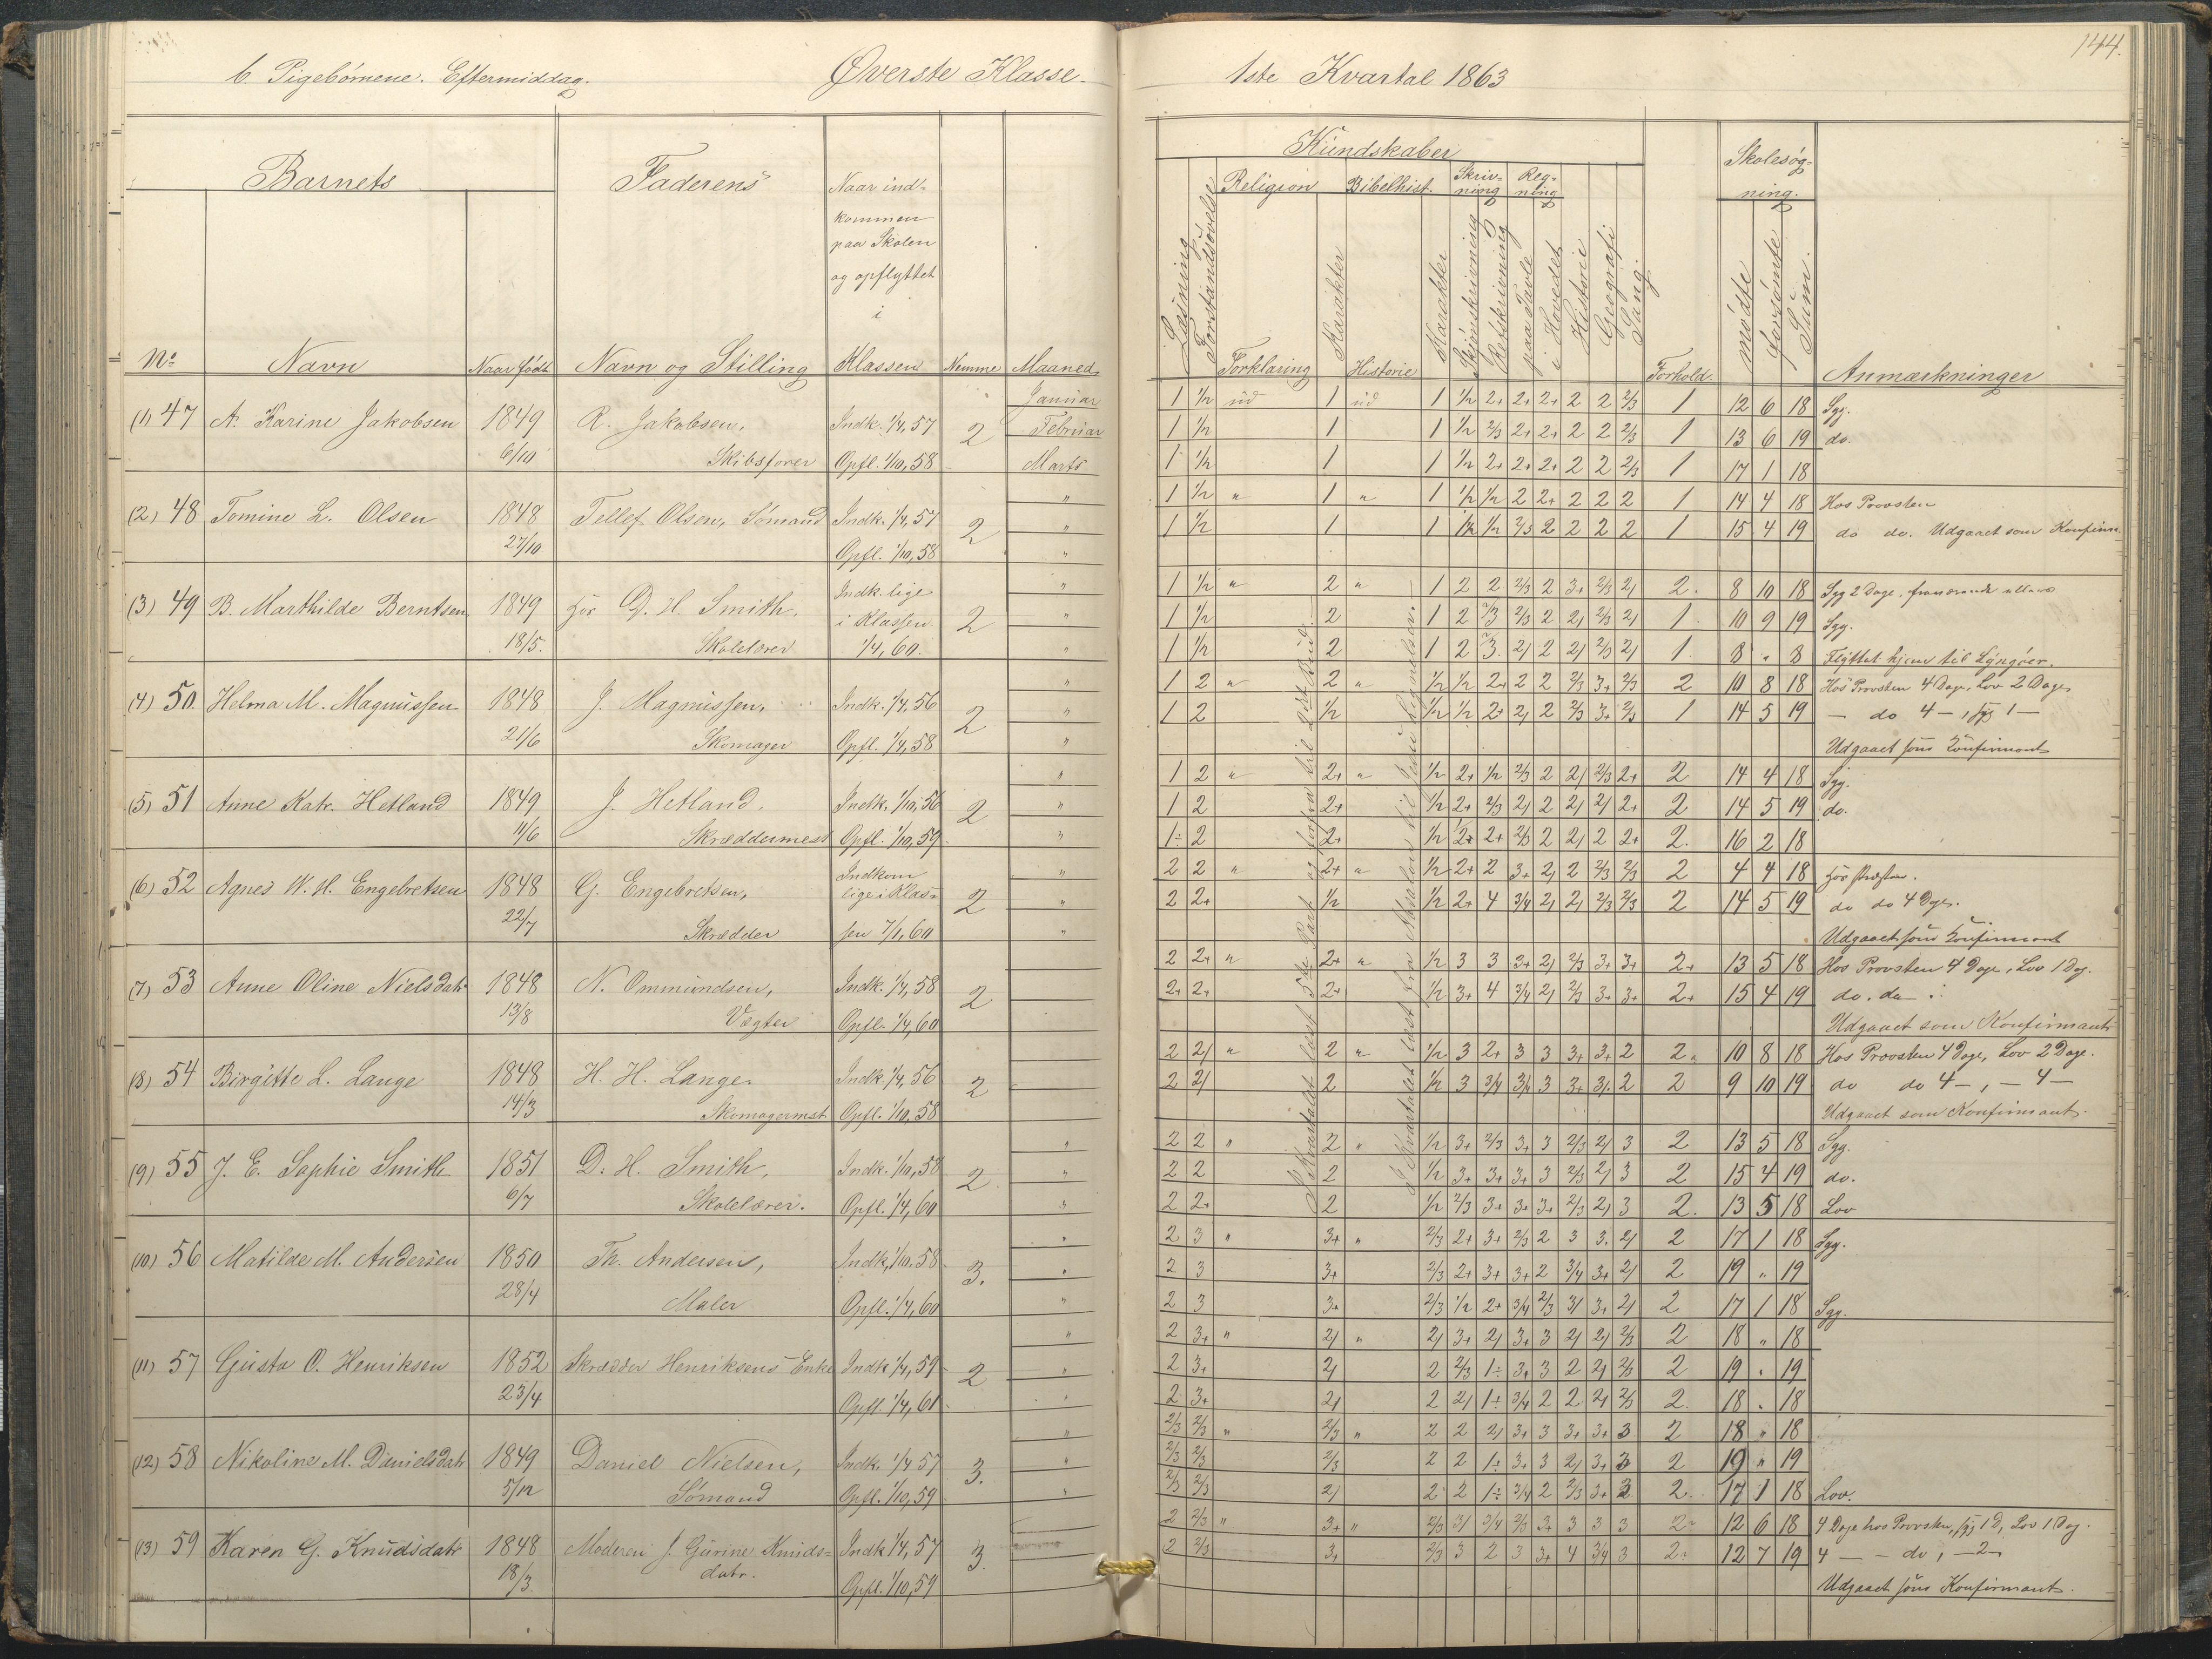 144.
b. Pigebörnene. Eftermiddag. Øverste Klasse. 1ste Kvartal 1863
Barnets Faderens Naar ind-
kommen
paa Skolen
og opflyttet
i
No Navn Naar född Navn og Stilling Klassen Nemme Maaned
Kundskaber Skolesøg-
ning.
Religion Bibelhist. Skriv-
ning Reg-
ning
Læsning Forstandsøvelse Forklaring Karakter Historie Karakter Skjönskrivning Retskrivning paa Tavle i Hovedet Historie Geografi Sang. Forhold. mödte forsömte Sum. Anmærkninger
Januar 1 1/2 ud 1 ud 1 1/2 2+ 2+ 2+ 2 2 2/3 1 12 6 18 Syg.
(1) 47 A. Karine Jakobsen 1849 R. Jakobsen, Indk. 1/4, 57 2 Februar 1 1/2 1 1 1/2 2/3 2+ 2+ 2 2 2/3 1 13 6 19 do.
6/10 Skibsförer Opfl. 1/10, 58 Marts 1 1/2 1 1 1/2 2+ 2+ 2+ 2 2 2/3 1 17 1 18
1 1/2 " 1 " 1 1/2 1/2 2 2+ 2 2 2 1 14 4 18 Hos Provsten
(2) 48 Tomine L. Olsen 1848 Tellef Olsen, Sömand Indk. 1/4, 57 2 " 1 1/2 1 1 1/2 1/2 2/3 2 2 2 2 1 15 4 19 do do. Udgaaet som Konfirm.
27/10 Opfl. 1/10, 58 "
Indk. lige " 1 1/2 " 2 " 1 2 2 2/3 2 3+ 2/3 2/ 2. 8 10 18 Syg 2 Dage,
(3) 49 B. Marthilde Berntsen 1849 hos D. H. Smith, i Klassen 2 " 1 1/2 2 1 2 2/3 2/3 2 2/ 2/3 2/ 1. 10 9 19 Syg.
18/5. Skolelærer 1/4, 60. " 1 1/2 2 1 2 3. 2/ 2 2/ 2/3 2/ 1 8 " 8 Flyttet hjem til Lyngöer.
" 1 2 " 2 " 1/2 1/2 2+ 2 2 2/3 3+ 2/3 2 10 8 18 Hos Provsten 4 Dage, Lov 2 Dage
(4) 50 Helma M. Magnussen 1848 J. Magnussen, Indk. 1/4, 56 2 " 1 2 1/2 1/2 1/2 2+ 2/ 2 2/3 3+ 2/3 1 14 5 19 — do 4 —, syg 1 —
21/6 Skomager Opfl. 1/4, 58 " Udgaaet som Konfirmant
" 1 2 " 2+ " 1/2 2+ 1/2 2/3 2 2/ 2/3 2+ 2 14 4 18 Syg.
(5) 51 Anne Katr. Hetland 1849 J. Hetland, Indk. 1/10, 56 2 " 1 2 2+ 1/2 2+ 2/3 2/ 2 2/ 2/ 2+ 2 14 5 19 do.
11/6 Skræddermest Opfl. 1/10, 59 " 1÷ 2 2+ 1/2 2+ 2+ 2/3 2 2/ 2 2+ 2. 16 2 18
Indkom " 2 2 " 2+ " 1/2 2+ 2 3+ 2/ 2 2/3 2/3 2 4 4 18 hos Præsten.
(6) 52 Agnes W. H. Engebretsen 1848 G. Engebretsen, lige i Klas- 2 " 2 2+ 1/2 1/2 2+ 4 3/4 2/ 2/ 2/3 2/3 2 14 5 19 do do 4 Dge.
22/7 Skrædder sen 7/1, 60 " Udgaaet som Konfirmant
2 2+ " 2+ " 1/2 3 3 3+ 2/ 2/3 3+ 3+ 2+ 13 5 18 Hos Provsten 4 Dage, Lov 1 Dag.
(7) 53 Anne Oline Nielsdatr 1848 N. Ommundsen, Indk. 1/4, 58 2 2+ 2+ 2+ 1/2 3+ 4 3/4 2/ 2/3 3+ 3+ 2+ 15 4 19 do. do
13/8 Vægter Opfl. 1/4, 60 Udgaaet som Konfirmant
2 2/ " 2 " 1/2 3 2+ 3 3 3+ 3+ 2 2. 10 8 18 Hos Provsten 4 Dage, Lov 2 Dage.
(8) 54 Birgitte L. Lange 1848 H. H. Lange. Indk. 1/4, 56 2 2 2/ 2 1/2 3 3/4 3/4 3 3+ 3/ 2 2 9 10 19 do do 4 —, — 4 —
14/3 Skomagermst Opfl. 1/10, 58 Udgaaet som Konfirmant.
" 2 2 " 2 " 1/2 3+ 2/3 3+ 3 2/3 2/ 3 2 13 5 18 Syg.
(9) 55 J. E. Sophie Smith 1851 D. H. Smith, Indk. 1/10, 58 2 " 2 2 2 1/2 3+ 3+ 3+ 3 2/3 2/ 3 2 15 4 19 do.
6/7 Skolelærer. Opfl. 1/4, 60 " 2 2+ 2 1/2 2/3 3+ 3+ 3+ 2/3 2/ 3 2. 13 5 18 Lov
" 2 3 " 3+ " 2/3 2+ 3+ 2/3 2 3 3. 2/ 2 17 1 18 Syg.
(10) 56 Matilde M. Andersen 1850 Th. Andersen, Indk. 1/10, 58 3. " 2 3 3+ 2/3 2+ 3+ 3+ 2 3/4 3+ 2/ 2 19 " 19
28/4 Maler Opfl. 1/4, 60 " 2 3 3+ 2/3 1/2 2+ 3/4 2/3 3/ 3+ 2/ 2 17 1 18 Syg.
" 2 3+ " 2/ " 2/ 3+ 2/ 3+ 3 2/ 2/ 2/3 2 18 " 18
(11) 57 Gusta O. Henriksen 1852 Skrædder Henriksens Enke Indk 1/4, 59 2 " 2 3+ 2/ 2 2/3 1÷ 3+ 3 2 2/ 2/3 2 19 " 19
23/4 Opfl. 1/4, 61 " 2 3+ 2/ 2 2/ 1÷ 3/4 2 2 2/ 2/3 2. 18 " 18
" 2/3 2/3 " 2/3 " 2 2 2/ 3+ 3 3+ 3+ 3 2 18 " 18
(12) 58 Nikoline M. Danielsdatr 1849 Daniel Nielsen, Indk. 1/4 57 3. " 2/3 2/3 2/3 2 2 1÷ 3+ 3 2/ 3+ 3 2 19 " 19
5/12 Sömand Opfl. 1/10, 59 " 2/3 2/3 2/ 2 2 1÷ 3/4 2 2/3 3+ 3 2. 17 1 18 Lov.
2 2/3 " 3+ " 2/3 3/ 3/4 2/3 3+ 3 3 3 2. 12 6 18 4 Dage hos Provsten, syg 1 D, Lov 1 Dag.
(13) 59 Karen G. Knudsdatr 1848 Moderen J. Gurine Knuds- Indk 1/4, 57 3. 2 2/3 3+ 2/3 3 2 3 3+ 4 3/4 3 2. 12 7 19 4 — — do, — 2 —
18/3. datr. Opfl. 1/10, 59 Udgaaet som Konfirmant.
I Kvartalet læst 5te Part og forfra til 2det Bud.
I Kvartalet læst fra